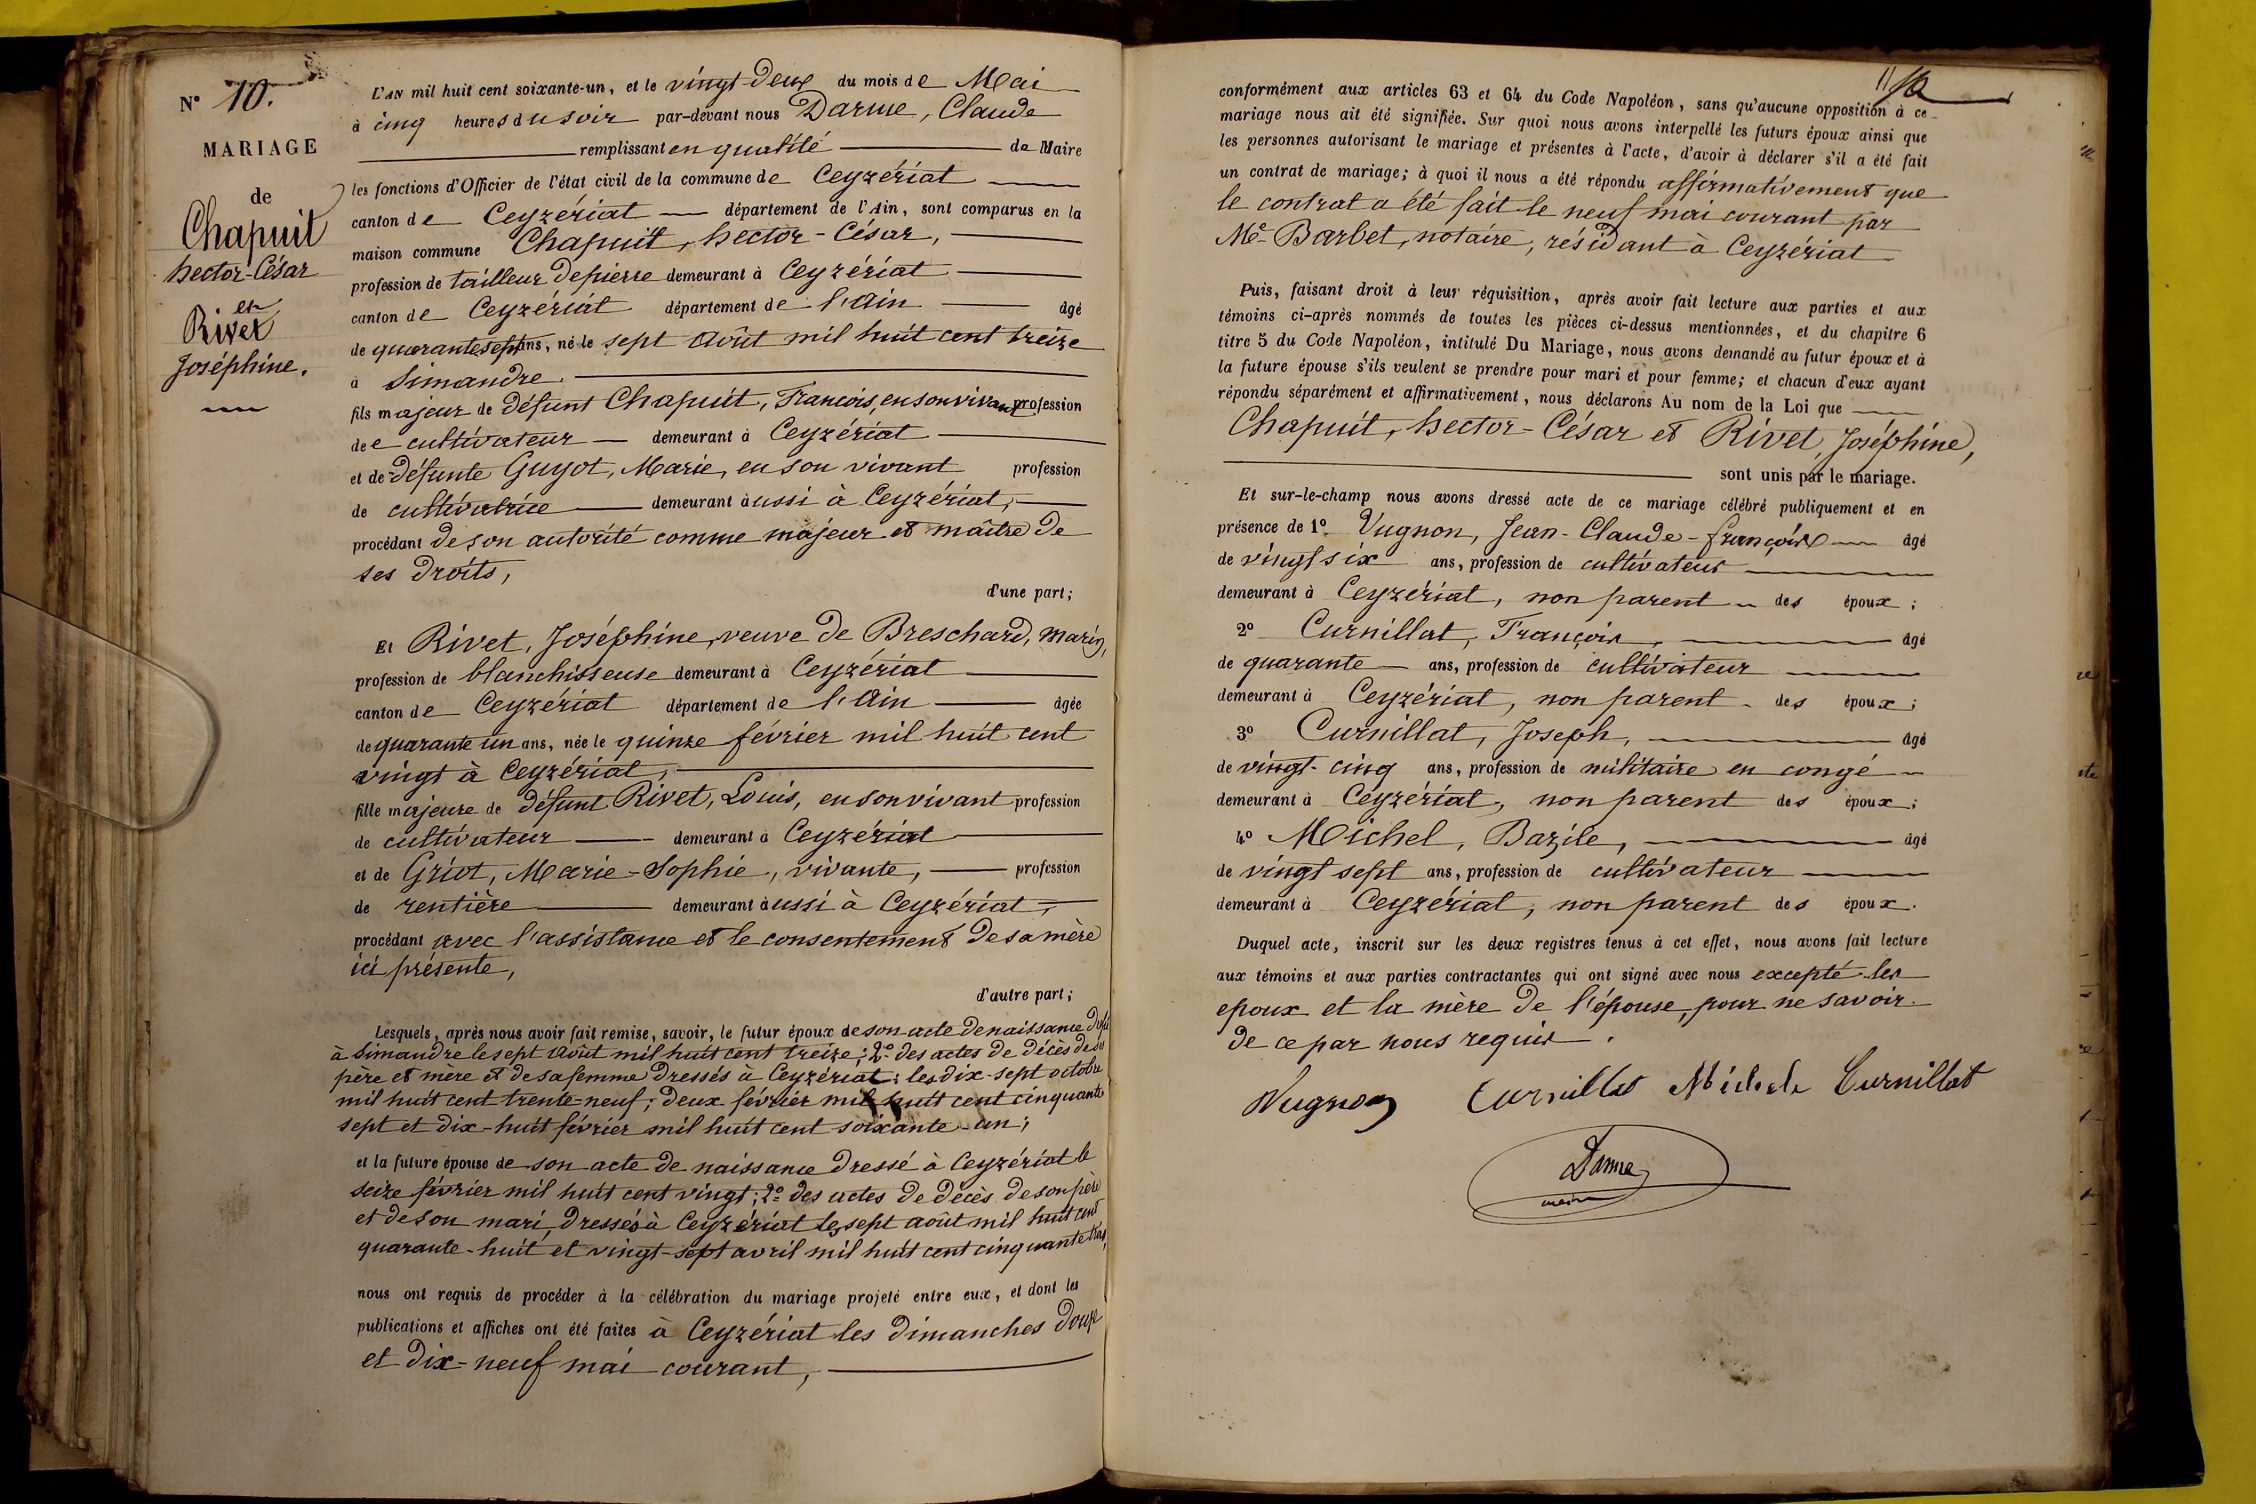 N° 10.
MARIAGE
de
Chapuit
hector-César
et
Rivet
Joséphine.
L'AN mil huit cent soixante-un, et le vingt-deux du mois de Mai
à cinq heures du soir par-devant nous Darme, Claude
remplissant en qualité de Maire
les fonctions d'Officier de l'état civil de la commune de Ceyzériat
canton de Ceyzériat département de l'Ain, sont comparus en la
maison commune Chapuit, hector-César,
profession de tailleur de pierre demeurant à Ceyzériat
canton de Ceyzériat département de l'Ain âgé
de quarante sept ans, né le sept Août mil huit cent treize
à Simandre
fils majeur de défunt Chapuit, François, en son vivant profession
de cultivateur demeurant à Ceyzériat
et de défunte Guyot, Marie, en son vivant profession
de cultivatrice demeurant aussi à Ceyzériat,
procédant de son autorité comme majeur et maître de
ses droits,
d'une part;
Et Rivet, Joséphine, veuve de Breschard, Marin,
profession de blanchisseuse demeurant à Ceyzériat
canton de Ceyzériat département de l'Ain âgée
de quarante un ans, née le quinze février mil huit cent
vingt à Ceyzériat,
fille majeure de défunt Rivet, Louis, en son vivant profession
de cultivateur demeurant à Ceyzériat
et de Griot, Marie-Sophie, vivante, profession
de rentière demeurant aussi à Ceyzériat,
procédant avec l'assistance et le consentement de sa mère
ici présente,
d'autre part;
Lesquels, après nous avoir fait remise, savoir, le futur époux de son acte de naissance
à Simandre le sept Août mil huit cent treize; 2° des actes de décès de ses
père et mère et de sa femme dressés à Ceyzériat: les dix-sept octobre
mil huit cent trente-neuf; deux février mil huit cent cinquante
sept et dix-huit février mil huit cent soixante-un;
et la future épouse de son acte de naissance dressé à Ceyzériat le
seize février mil huit cent vingt; 2° des actes de décès de son père
et de son mari, dressés à Ceyzériat les sept août mil huit cent
quarante-huit et vingt-sept avril mil huit cent cinquante trois,
nous ont requis de procéder à la célébration du mariage projeté entre eux, et dont les
publications et affiches ont été faites à Ceyzériat les dimanches douze
et dix-neuf mai courant,
conformément aux articles 63 et 64 du Code Napoléon, sans qu'aucune opposition à ce
mariage nous ait été signifiée. Sur quoi nous avons interpellé les futurs époux ainsi que
les personnes autorisant le mariage et présentes à l'acte, d'avoir à déclarer s'il a été fait
un contrat de mariage; à quoi il nous a été répondu affirmativement que
le contrat a été fait le neuf mai courant par
Me Barbet, notaire, résidant à Ceyzériat
Puis, faisant droit à leur réquisition, après avoir fait lecture aux parties et aux
témoins ci-après nommés de toutes les pièces ci-dessus mentionnées, et du chapitre 6
titre 5 du Code Napoléon, intitulé Du Mariage, nous avons demandé au futur époux et à
la future épouse s'ils veulent se prendre pour mari et pour femme; et chacun d'eux ayant
répondu séparément et affirmativement, nous déclarons Au nom de la Loi que
Chapuit, hector-César et Rivet, Joséphine,
sont unis par le mariage.
Et sur-le-champ nous avons dressé acte de ce mariage célébré publiquement et en
présence de 1° Vugnon, Jean-Claude-françois âgé
de vingt six ans, profession de cultivateur
demeurant à Ceyzériat, non parent des époux;
2° Curnillat, François, âgé
de quarante ans, profession de cultivateur
demeurant à Ceyzériat, non parent des époux;
3° Curnillat, Joseph, âgé
de vingt-cinq ans, profession de militaire en congé
demeurant à Ceyzériat, non parent des époux;
4° Michel, Bazile, âgé
de vingt sept ans, profession de cultivateur
demeurant à Ceyzériat, non parent des époux.
Duquel acte, inscrit sur les deux registres tenus à cet effet, nous avons fait lecture
aux témoins et aux parties contractantes qui ont signé avec nous excepté les
epoux et la mère de l'épouse, pour ne savoir
de ce par nous requis.
Vugnon Curnillat Michel Curnillat
Darme